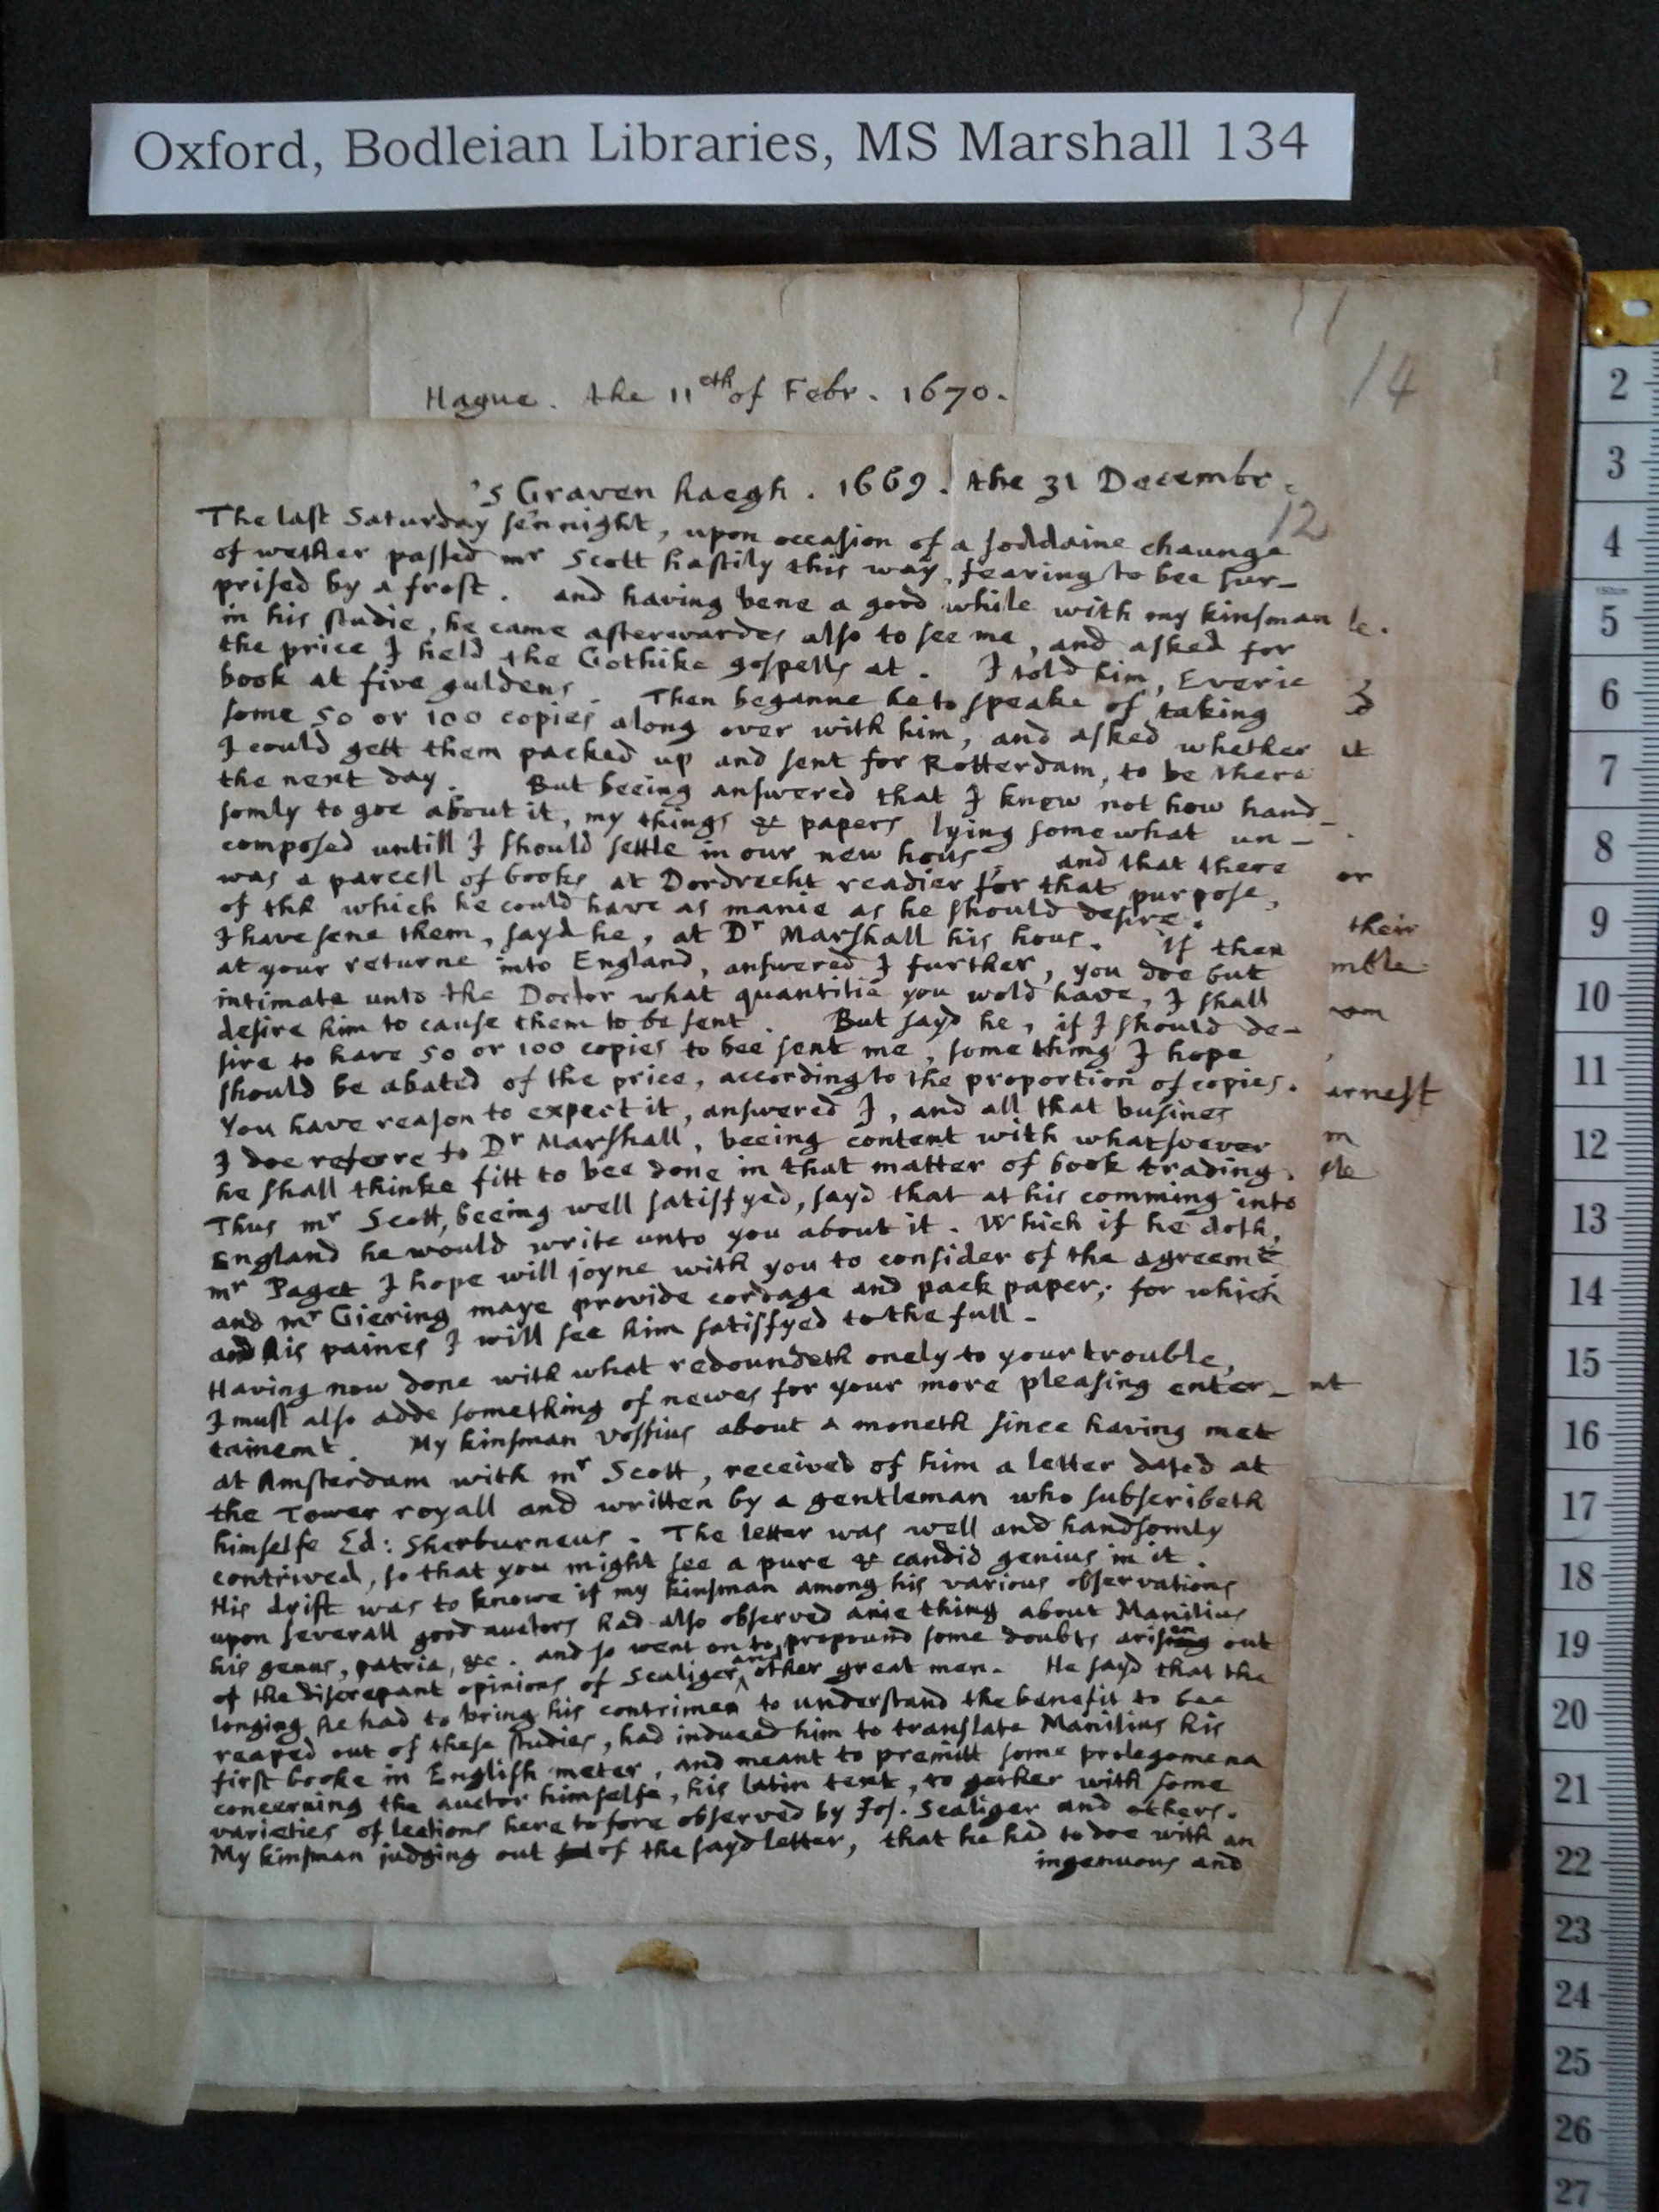 Oxford, Bodleian Libraries, MS Marshall 134
14
Hague. the 11eth of Febr. 1670.
's Graven haegh. 1669. the 31 Decembr.
12
The last Saturday sennight, upon occasion of a soddaine chaunge
of wether passed mr Scott hastily this way, fearing to bee sur-
prised by a frost. and having bene a good while with my kinsman
in his studie, he came afterwardes also to see me, and asked for
the price I held the Gothike gospells at. I told him, Everie
book at five guldens. Then beganne he to speake of taking
some 50 or 100 copies along over with him, and asked whether
I could gett them packed up and sent for Rotterdam, to be there
the next day. But beeing answered that I knew not how hand-
somly to goe about it, my things & papers lying somewhat un-
composed untill I should settle in our new hous; and that there
was a parcell of books at Dordrecht readier for that purpose,
of the which he could have as manie as he should desire.
I have sene them, sayd he, at Dr Marshall his hous. If then
at your returne into England, answered I further, you doe but
intimate unto the Doctor what quantitie you wold have, I shall
desire him to cause them to be sent. But sayd he, if I should de-
sire to have 50 or 100 copies to bee sent me, some thing I hope
should be abated of the price, according to the proportion of copies.
You have reason to expect it, answered I, and all that busines
I doe referre to Dr Marshall, beeing content with whatsoever
he shall thinke fitt to bee done in that matter of book trading.
Thus mr Scott, beeing well satisfyed, sayd that at his comming into
England he would write unto you about it. Which if he doth,
mr Paget I hope will joyne with you to consider of the agreemt
and mr Giering maye provide cordage and pack paper; for which
and his paines I will see him satisfyed to the full.
Having now done with what redoundeth onely to your trouble,
I must also adde something of newes for your more pleasing enter-
tainemt. My kinsman Vossius about a moneth since having met
at Amsterdam with mr Scott, received of him a letter dated at
the Tower royall and written by a gentleman who subscribeth
himselfe Ed: Sherburneus. The letter was well and handsomly
contrived, so that you might see a pure & candid genius in it.
His drift was to knowe if my kinsman among his various observations
upon severall good auctors had also observed anie thing about Manilius
his genus, patria, &c. and so went on to propound some doubts arising out
of the discrepant opinions of Scaliger and other great men. He sayd that the
longing he had to bring his contrimen to understand the benefit to bee
reaped out of these studies, had induced him to translate Manilius his
first booke in English meter, and meant to premitt some prolegomena
concerning the auctor himselfe, his latin text, to gether with some
varieties of lections here to fore observed by Jos. Scaliger and others.
My kinsman judging out of the sayd letter, that he had to doe with an
ingenuous and
le.
it
or
their
mble
arnest
m
nt
2
3
4
5
6
7
8
9
10
11
12
13
14
15
16
17
18
19
20
21
22
23
24
25
26
27